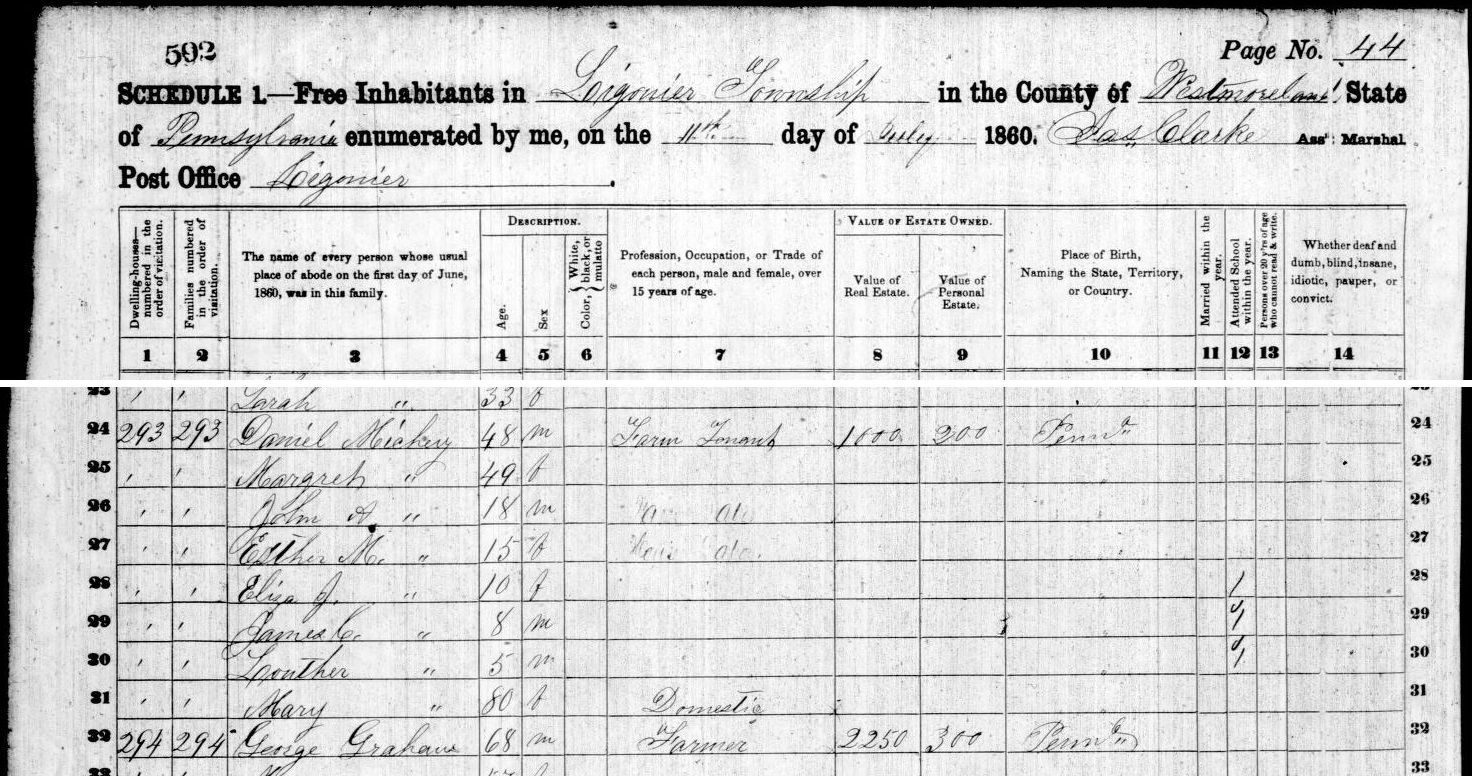 502
Page No. 44
SCHEDULE 1.—Free Inhabitants in Ligonier Township in the County of Westmoreland State
of Pennsylvania enumerated by me, on the 11th day of July 1860. Jas. Clarke Ass't Marshal
Post Office Ligonier.
DESCRIPTION. VALUE OF ESTATE OWNED.
Dwelling-houses—numbered in the order of visitation.
Families numbered in the order of visitation.
The name of every person whose usual place of abode on the first day of June, 1860, was in this family.
Age.
Sex
Color, { White, black, or mulatto
Profession, Occupation, or Trade of each person, male and female, over 15 years of age.
Value of Real Estate.
Value of Personal Estate.
Place of Birth, Naming the State, Territory, or Country.
Married within the year.
Attended School within the year.
Persons over 20 y'rs of age who cannot read & write.
Whether deaf and dumb, blind, insane, idiotic, pauper, or convict.
1 2 3 4 5 6 7 8 9 10 11 12 13 14
23 ' ' Sarah " 33 f
24 293 293 Daniel Mickey 48 m Farm Tenant 1000 200 Penna 24
25 ' ' Margret " 49 f 25
26 ' ' John A. " 18 m 26
27 ' ' Esther M. " 15 f 27
28 ' ' Eliza J. " 10 f / 28
29 ' ' James C. " 8 m / 29
30 ' ' Louther " 5 m / 30
31 ' ' Mary " 80 f Domestic 31
32 294 294 George Graham 68 m Farmer 2250 300 Penna 32
33 ' ' 33